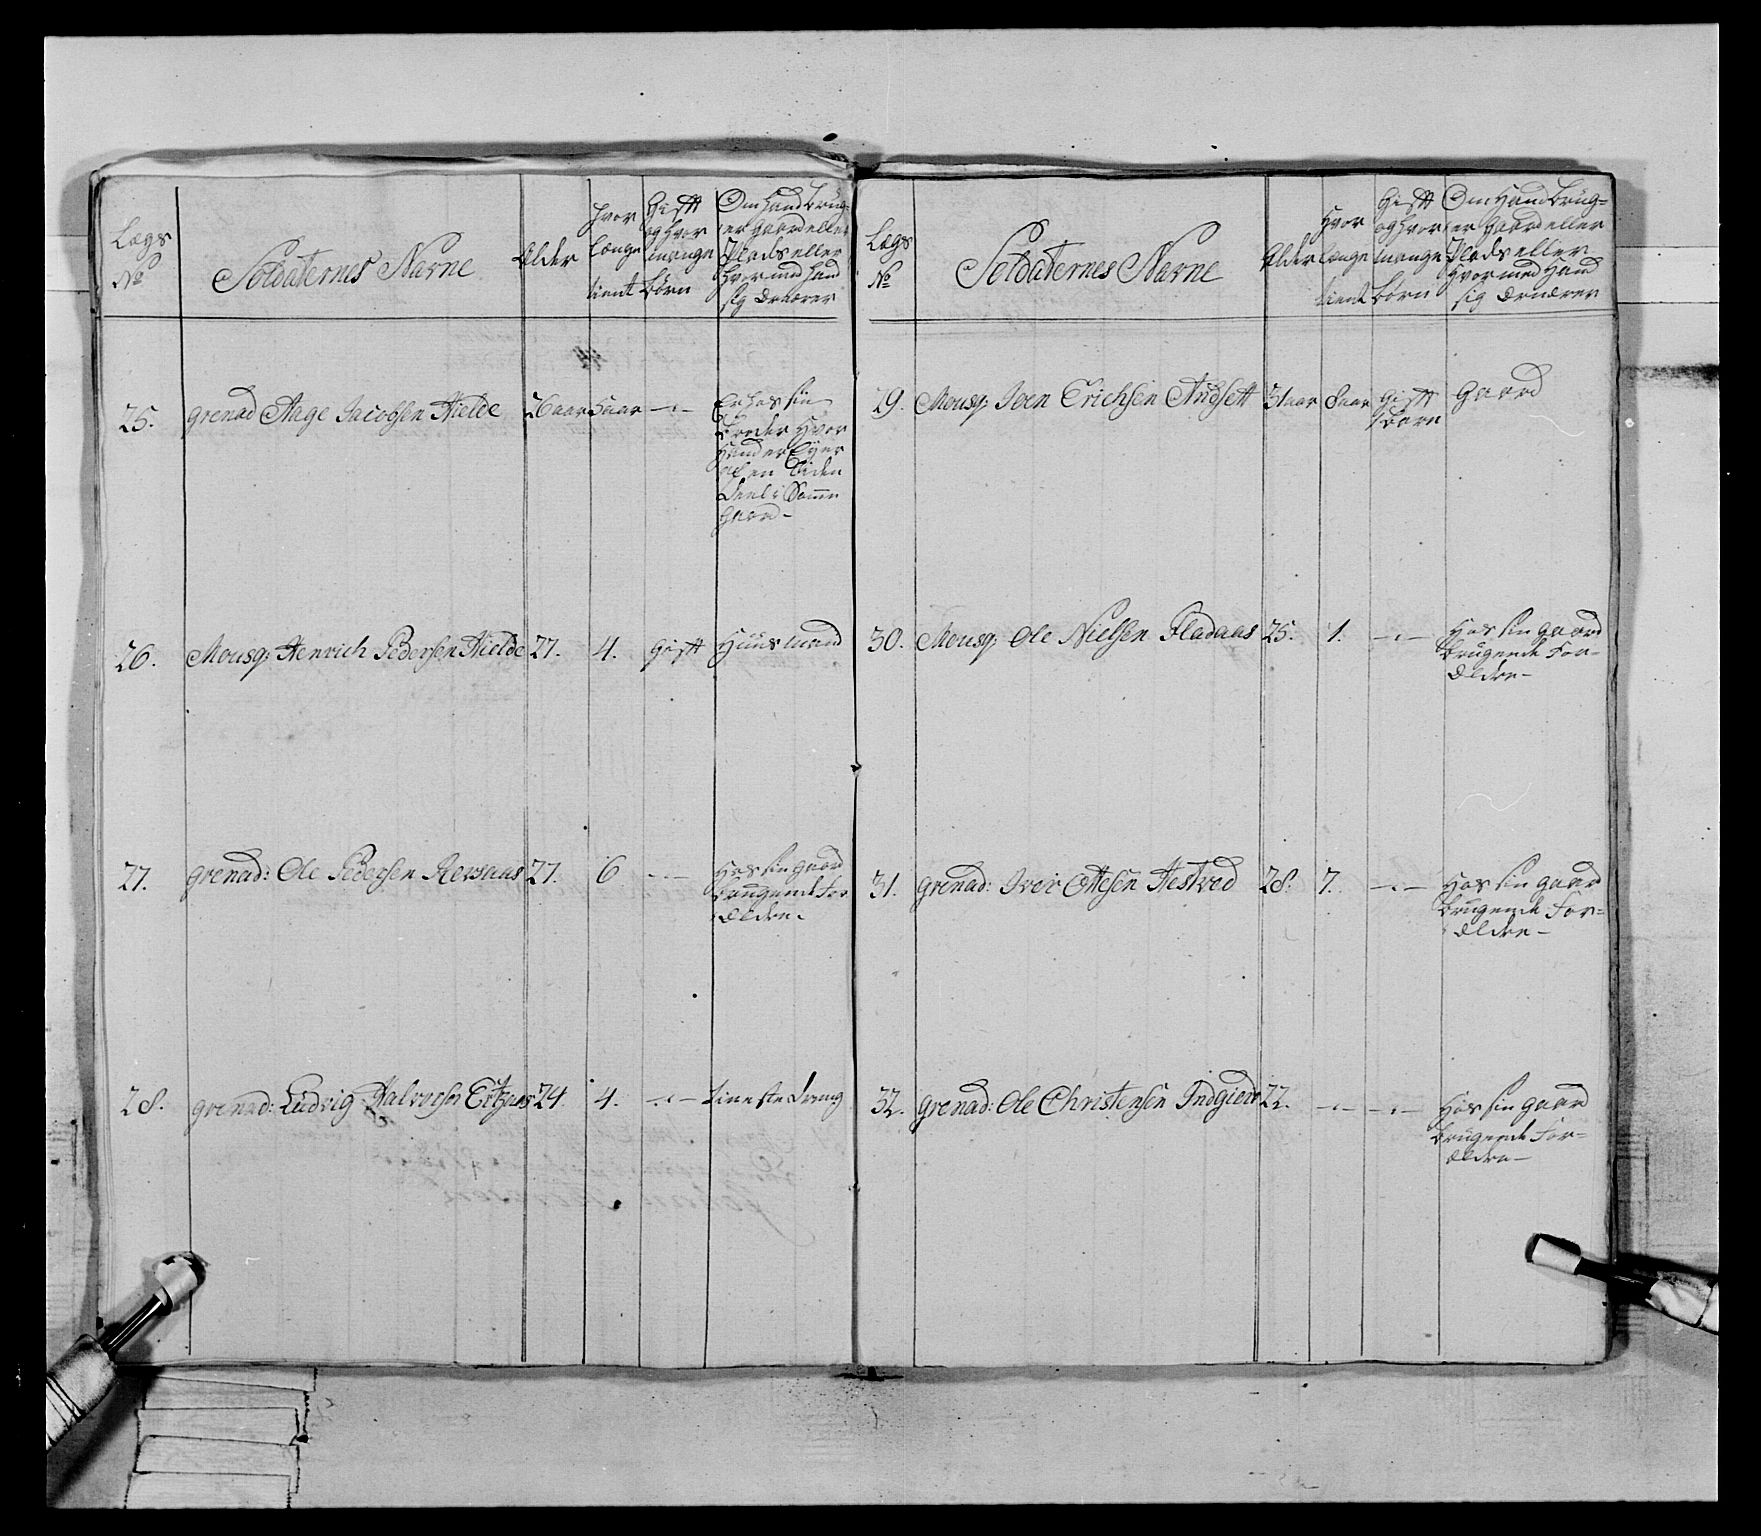 Lægs
No
Soldaternes Nafne
Alder
Hvor
længe
tient
Gift
og hvor
mange
børn
Om Hand Brug-
er gaard eller
Plads eller
hvormed Hand
sig Ernærer
25.
grenad Aage Jacobsen Hielde
26 aar
5 aar
—
Er hos sin
Broder Hvor
Hand er Eyer
af en Liden
Deel i Samme
gaard —
26.
Mousq: Henrich Pedersen Hielde
27.
4.
gift
Huusmand
27.
grenad: Ole Pedersen Reesaas
27.
6
—
Hos sin gaard
brugende For
ældre.
28.
grenad: Ludvig Halvorsen
24
4.
—
tieneste Dreng
Lægs
No
Soldaternes Nafne
Alder
Hvor
længe
tient
Gift
og hvor
mange
børn
Om Hand Brug=
er gaard eller
Plads eller
Hvormed Hand
sig Ernærer
29.
Mousq: Iven Erichsen Audsett
31 aar
8 aar
Gift
1 barn
gaard
30.
Mousq: Ole Nielsen Fladaas
25.
1.
—
Hos sin gaard
brugende For=
Ældre —
31.
grenad: Iver Ottesen Hestved
28.
7.
—
Hos sin gaard
brugende For=
ældre —
32.
grenad: Ole Christensen
22.
—
—
Hos sin gaard
brugende For=
ældre —